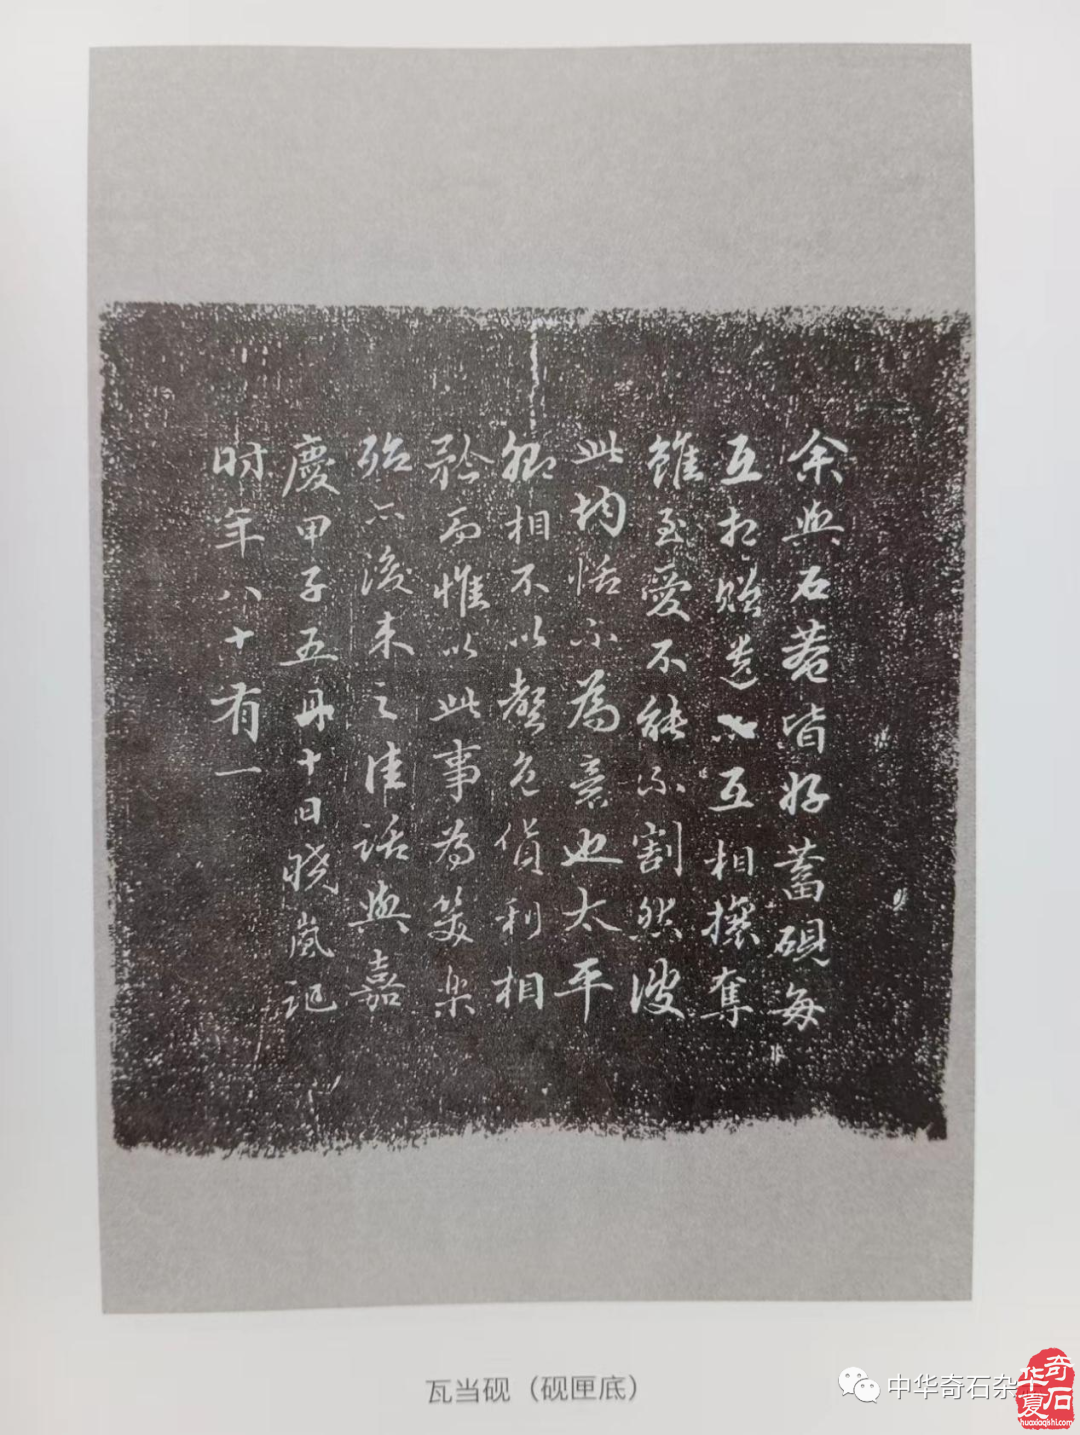 余與石菴皆好蓄硯每
互相贈遺亦互相攘奪
雖至愛不能不割然彼
此均恬不為意也太平
卿相不以聲色貨利相
矜而惟以此事為笑樂
殆亦後來之佳話與嘉
慶甲子五月十日曉嵐記
时年八十有一
瓦当砚（砚匣底）
中华奇石杂
华夏奇石
huaxiaqishi.com